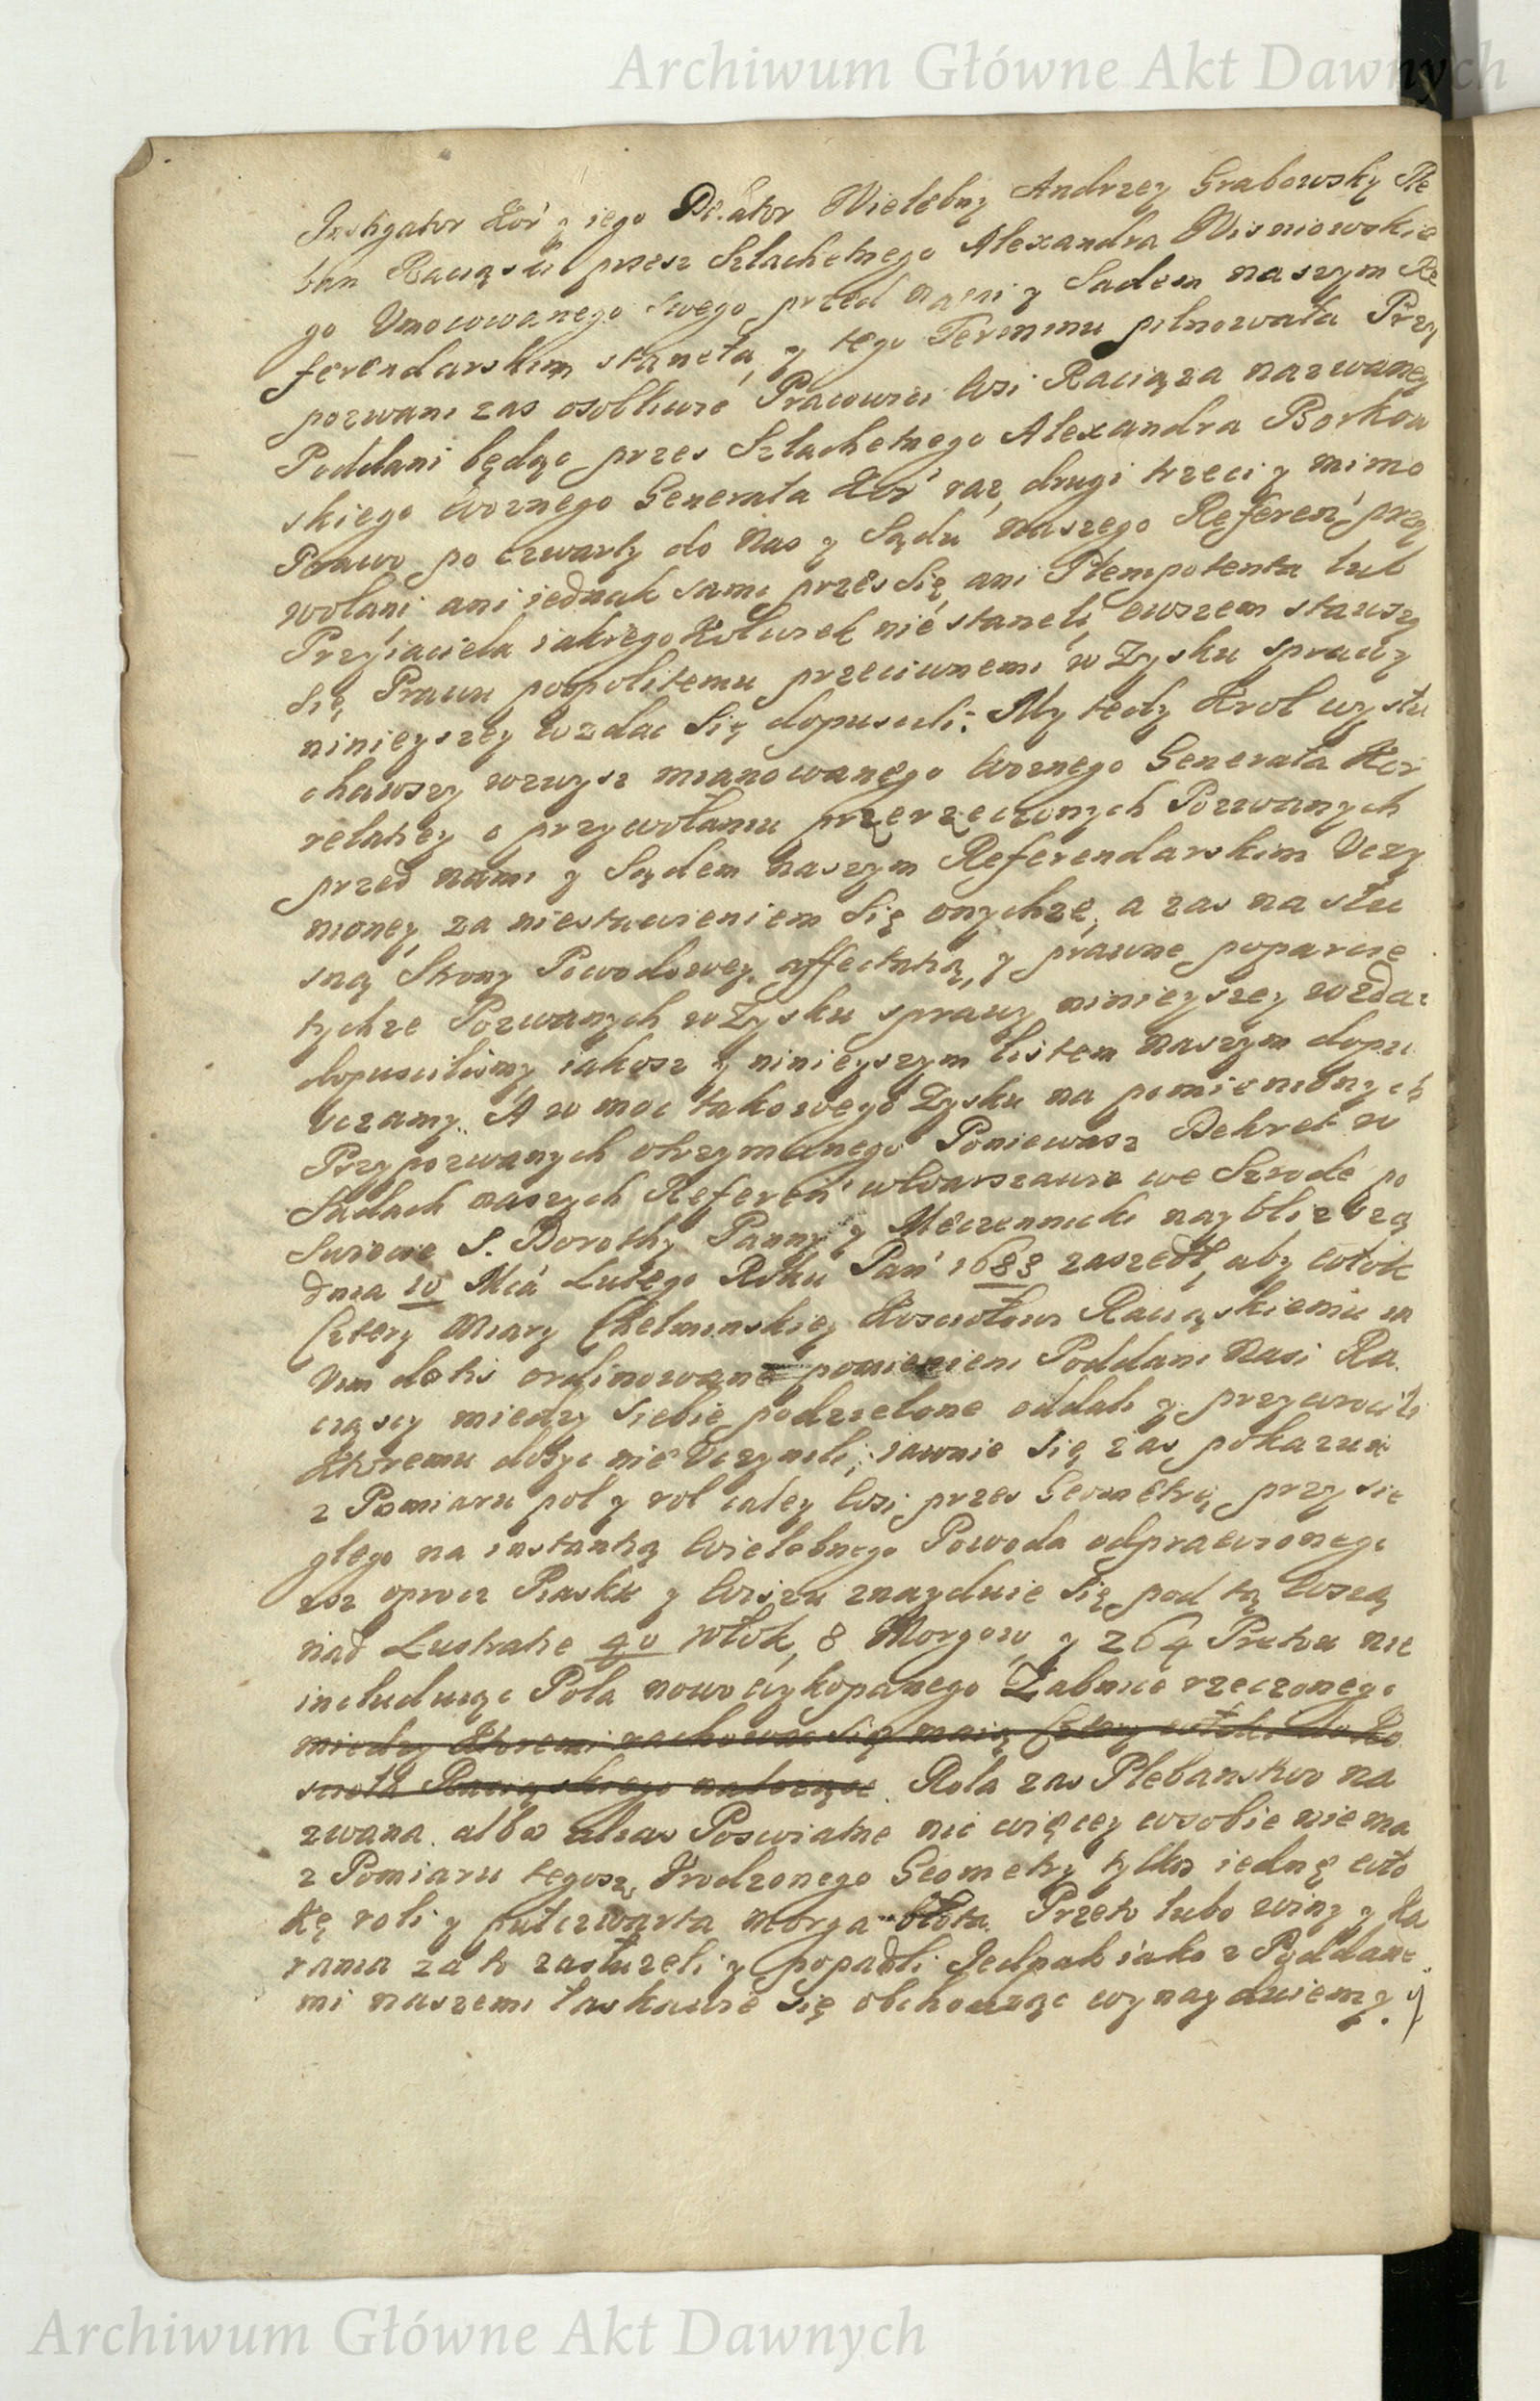 Archiwum Główne Akt Dawnych
Instigator Kor y iego Delator Wielebny Andrzey Grabowsky Ple
ban Raciąski przez Szlachetnego Alexandra Wisniowskie
go Umocowanego swego przed nami y Sadem naszym Re
ferendarskim staneła, y tego Terminu pilnowała Przy
pozwani zas osobliwie Pracowici wsi Raciąza nazwaney
Poddani będąc przes Szlachetnego Alexandra Borkow
skiego woznego Generała Kor raz, drugi trzeci y mimo
Prawo po czwarty do Nas y Sądu naszego Referen przy
wołani, ani iednak sami przes się, ani Plenipotenta lub
Przyiaciela iakiegoKolwiek nie staneli, owszem stawszy
się Prawu pospolitemu przeciwnemi w Zysku sprawy
ninieyszey wzdac się dopuscili: My tedy Krol wysłu
chawszy wzwysz mianowanego woznego Generała Kor
relatiey o przywołaniu przerzeczonych Pozwanych
przed nami y Sądem naszym Referendarskim Uczy
nioney, za niestawieniem się onychze, a zas na słu
szną Strony Powodowey affectatią, y prawne poparcie
tychze Pozwanych w Zysku sprawy ninieyszey wzdac
dopuscilismy iakosz y ninieyszym listem naszym dopu
sczamy. A w moc takowego Zysku na pomienionych
Przypozwanych otrzymanego Poniewasz Dekret w
Sądach naszych Referen w Warszawie we Szrode po
Swięcie S. Dorothy Panny y Męczennicki naybliszszą
dnia 10 Mca Lutego Roku Pan 1683 zaszedł, aby włok
Cztery Miary Chełminskiey Kosciołowi Raciąskiemu in
Vim dotis ordinowane pomienieni Poddani Nasi Ra
ciąscy miedzy siebie podzielone oddali y przywrocili
Ktoremu dosyc nie uczynili, iawnie się zas pokazuie
z Pomiaru pol y rol całey wsi przes Geometrę przysię
głego na instantią Wielebnego Powoda odprawionego
isz oprocz Piasku y Wiszu znayduie się pod tą wszą
nad Lustratie 40 Włok, 8 Morgow, y 264 Pretow nie
includuiąc Pola nowo wykopanego Zabnice rzeczonego
miedzy Ktoremi rachowac się maią Cztery włoki do Ko
scioła Raciąskiego nalezące. Rola zas Plebanskoo na
zwana albo alias Poswiatne nic więcey wsobie nie ma
z Pomiaru tegosz Urodzonego Geometry tylko iednę wło
kę roli y pułczwarta morga błota. Przeto lubo winy y Ka
rania za to zasłuzeli y popadli Iednak iako z Poddane
mi naszemi łaskawie się obchodząc wynayduiemy y
Archiwum Główne Akt Dawnych